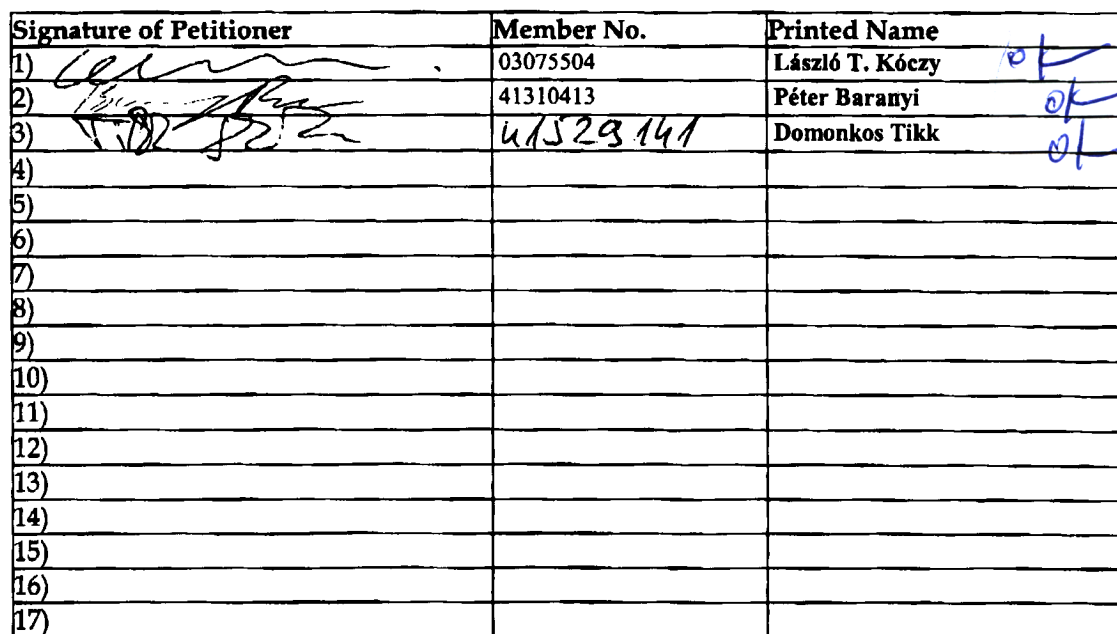 Signature of Petitioner Member No. Printed Name
1) 03075504 László T. Kóczy ok
2) 41310413 Péter Baranyi ok
3) 41529141 Domonkos Tikk ok
4)
5)
6)
7)
8)
9)
10)
11)
12)
13)
14)
15)
16)
17)